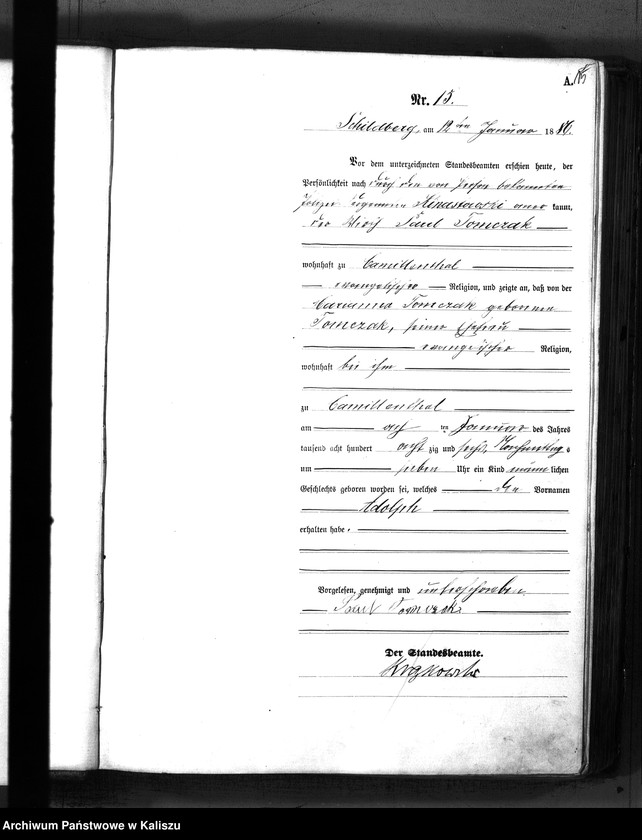 A. 15
Nr. 15.
Schildberg, am 12ten Januar 1886.
Vor dem unterzeichneten Standesbeamten erschien heute, der
Persönlichkeit nach durch den von Person bekannten
kannt,
der Wirth Paul Tomczak
wohnhaft zu Camillenthal
evangelischer Religion, und zeigte an, daß von der
Marianna Tomczak geborenen
Tomczak, seiner Ehefrau
evangelischer Religion,
wohnhaft bei ihm
zu Camillenthal
am acht ten Januar des Jahres
tausend acht hundert acht zig und sechs, Nachmittags
um sieben Uhr ein Kind männlichen
Geschlechts geboren worden sei, welches den Vornamen
Adolph
erhalten habe.
Vorgelesen, genehmigt und unterschrieben
Paul Tomczak
Der Standesbeamte.
Archiwum Państwowe w Kaliszu